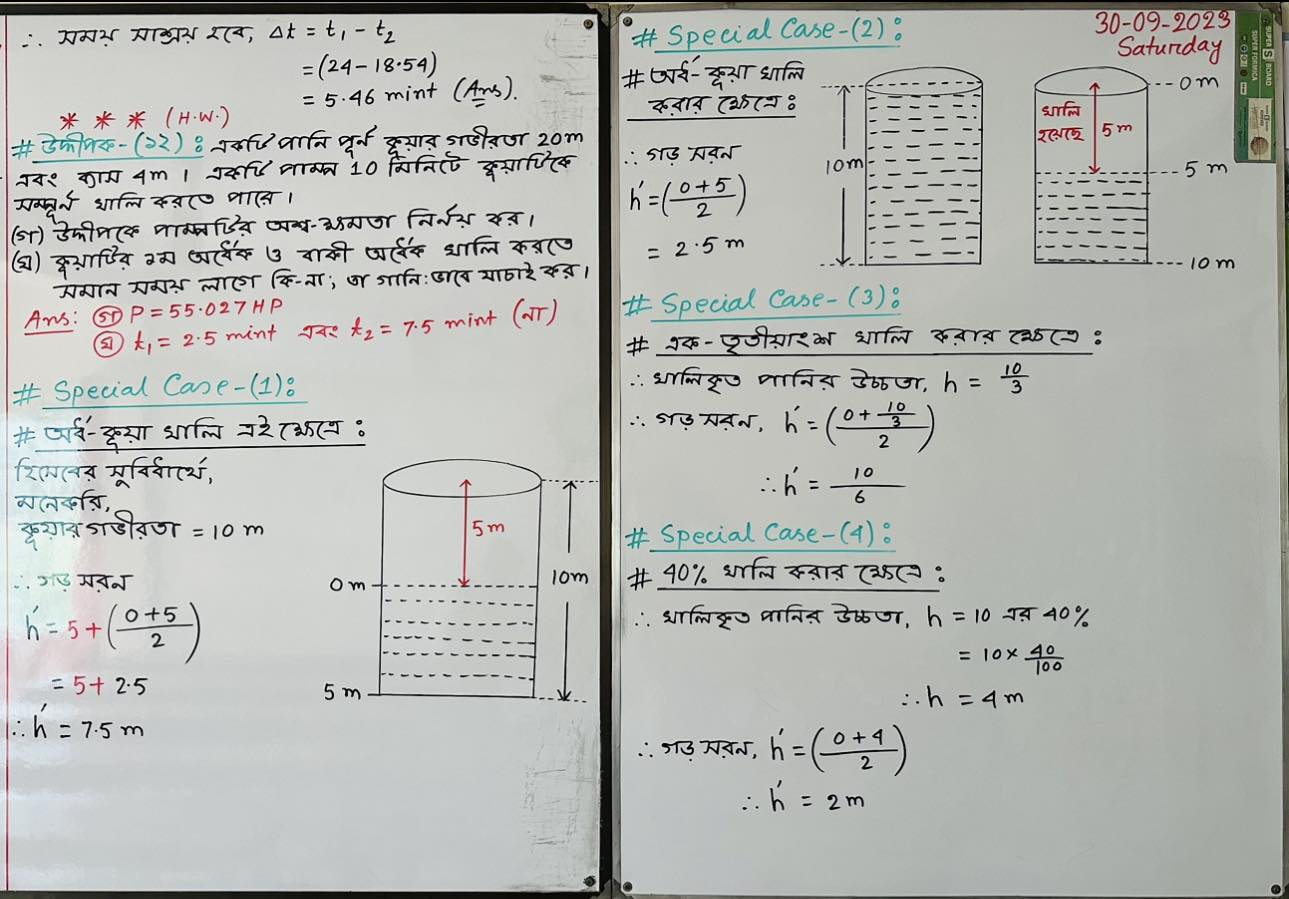 ∴ সময় সাশ্রয় হবে, Δt = t₁ - t₂
= (24 - 18.54)
= 5.46 mint (Ans).
* * * (H.W.)
# উদ্দীপক-(১২) : একটি পানি পূর্ন কূয়ার গভীরতা 20m
এবং ব্যাস 4m । একটি পাম্প 10 মিনিটে কূয়াটিকে
সম্পূর্ন খালি করতে পারে ।
(গ) উদ্দীপকে পাম্পটির অশ্ব-ক্ষমতা নির্নয় কর ।
(ঘ) কূয়াটির ১ম অর্ধেক ও বাকী অর্ধেক খালি করতে
সমান সময় লাগে কি-না ; তা গানি:ভাবে যাচাই কর ।
Ans: (গ) P = 55.027 HP
(ঘ) t₁ = 2.5 mint এবং t₂ = 7.5 mint (না)
# Special Case-(1):
# অর্ধ-কূয়া খালি এই ক্ষেত্রে :
হিসেবের সুবিধার্থে,
মনেকরি,
কূয়ার গভীরতা = 10 m
∴ গড় সরন
h́ = 5 + (0+5/2)
= 5 + 2.5
∴ h́ = 7.5 m
5 m
0 m
10m
5 m
30-09-2023
Saturday
SUPER S BOARD
SUPER FORMICA
# Special Case-(2):
# অর্ধ-কূয়া খালি
করার ক্ষেত্রে :
∴ গড় সরন
h́ = (0+5/2)
= 2.5 m
10m
খালি
হয়েছে
5 m
0 m
5 m
10 m
# Special Case-(3):
# এক-তৃতীয়াংশ খালি করার ক্ষেত্রে :
∴ খালিকৃত পানির উচ্চতা, h = 10/3
∴ গড় সরন, h́ = (0 + 10/3 / 2)
∴ h́ = 10/6
# Special Case-(4):
# 40% খালি করার ক্ষেত্রে :
∴ খালিকৃত পানির উচ্চতা, h = 10 এর 40%
= 10 × 40/100
∴ h = 4 m
∴ গড় সরন, h́ = (0+4/2)
∴ h́ = 2 m